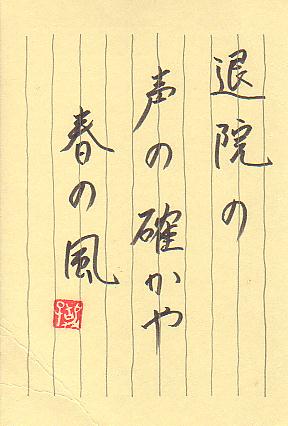 退院の
声の確かや
春の風